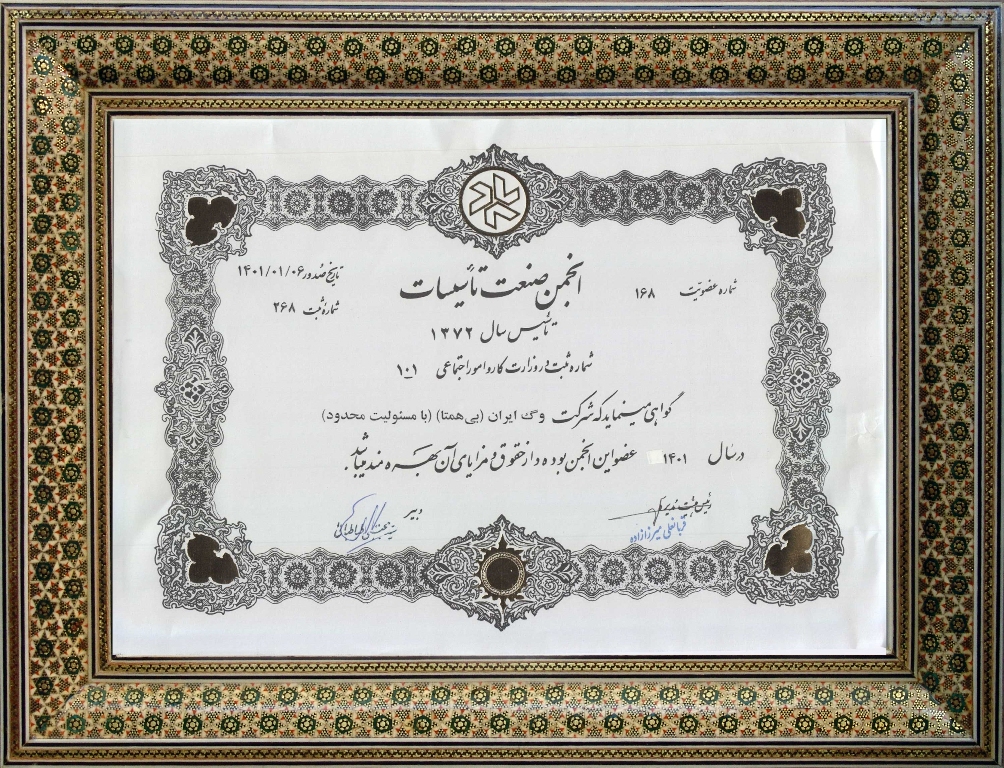 شماره عضویت ۱۶۸
انجمن صنعت تأسیسات
تاریخ صدور ۱۴۰۱/۰۱/۰۶
شماره ثبت ۲۶۸
تأسیس سال ۱۳۷۲
شماره ثبت در وزارت کار و امور اجتماعی ۱۰۱
گواهی مینماید که شرکت وگ ایران (بی‌همتا) (با مسئولیت محدود)
در سال ۱۴۰۱ عضو این انجمن بوده و از حقوق و مزایای آن بهره مند میباشد.
رئیس هیئت مدیره
قربانعلی میرزازاده
دبیر